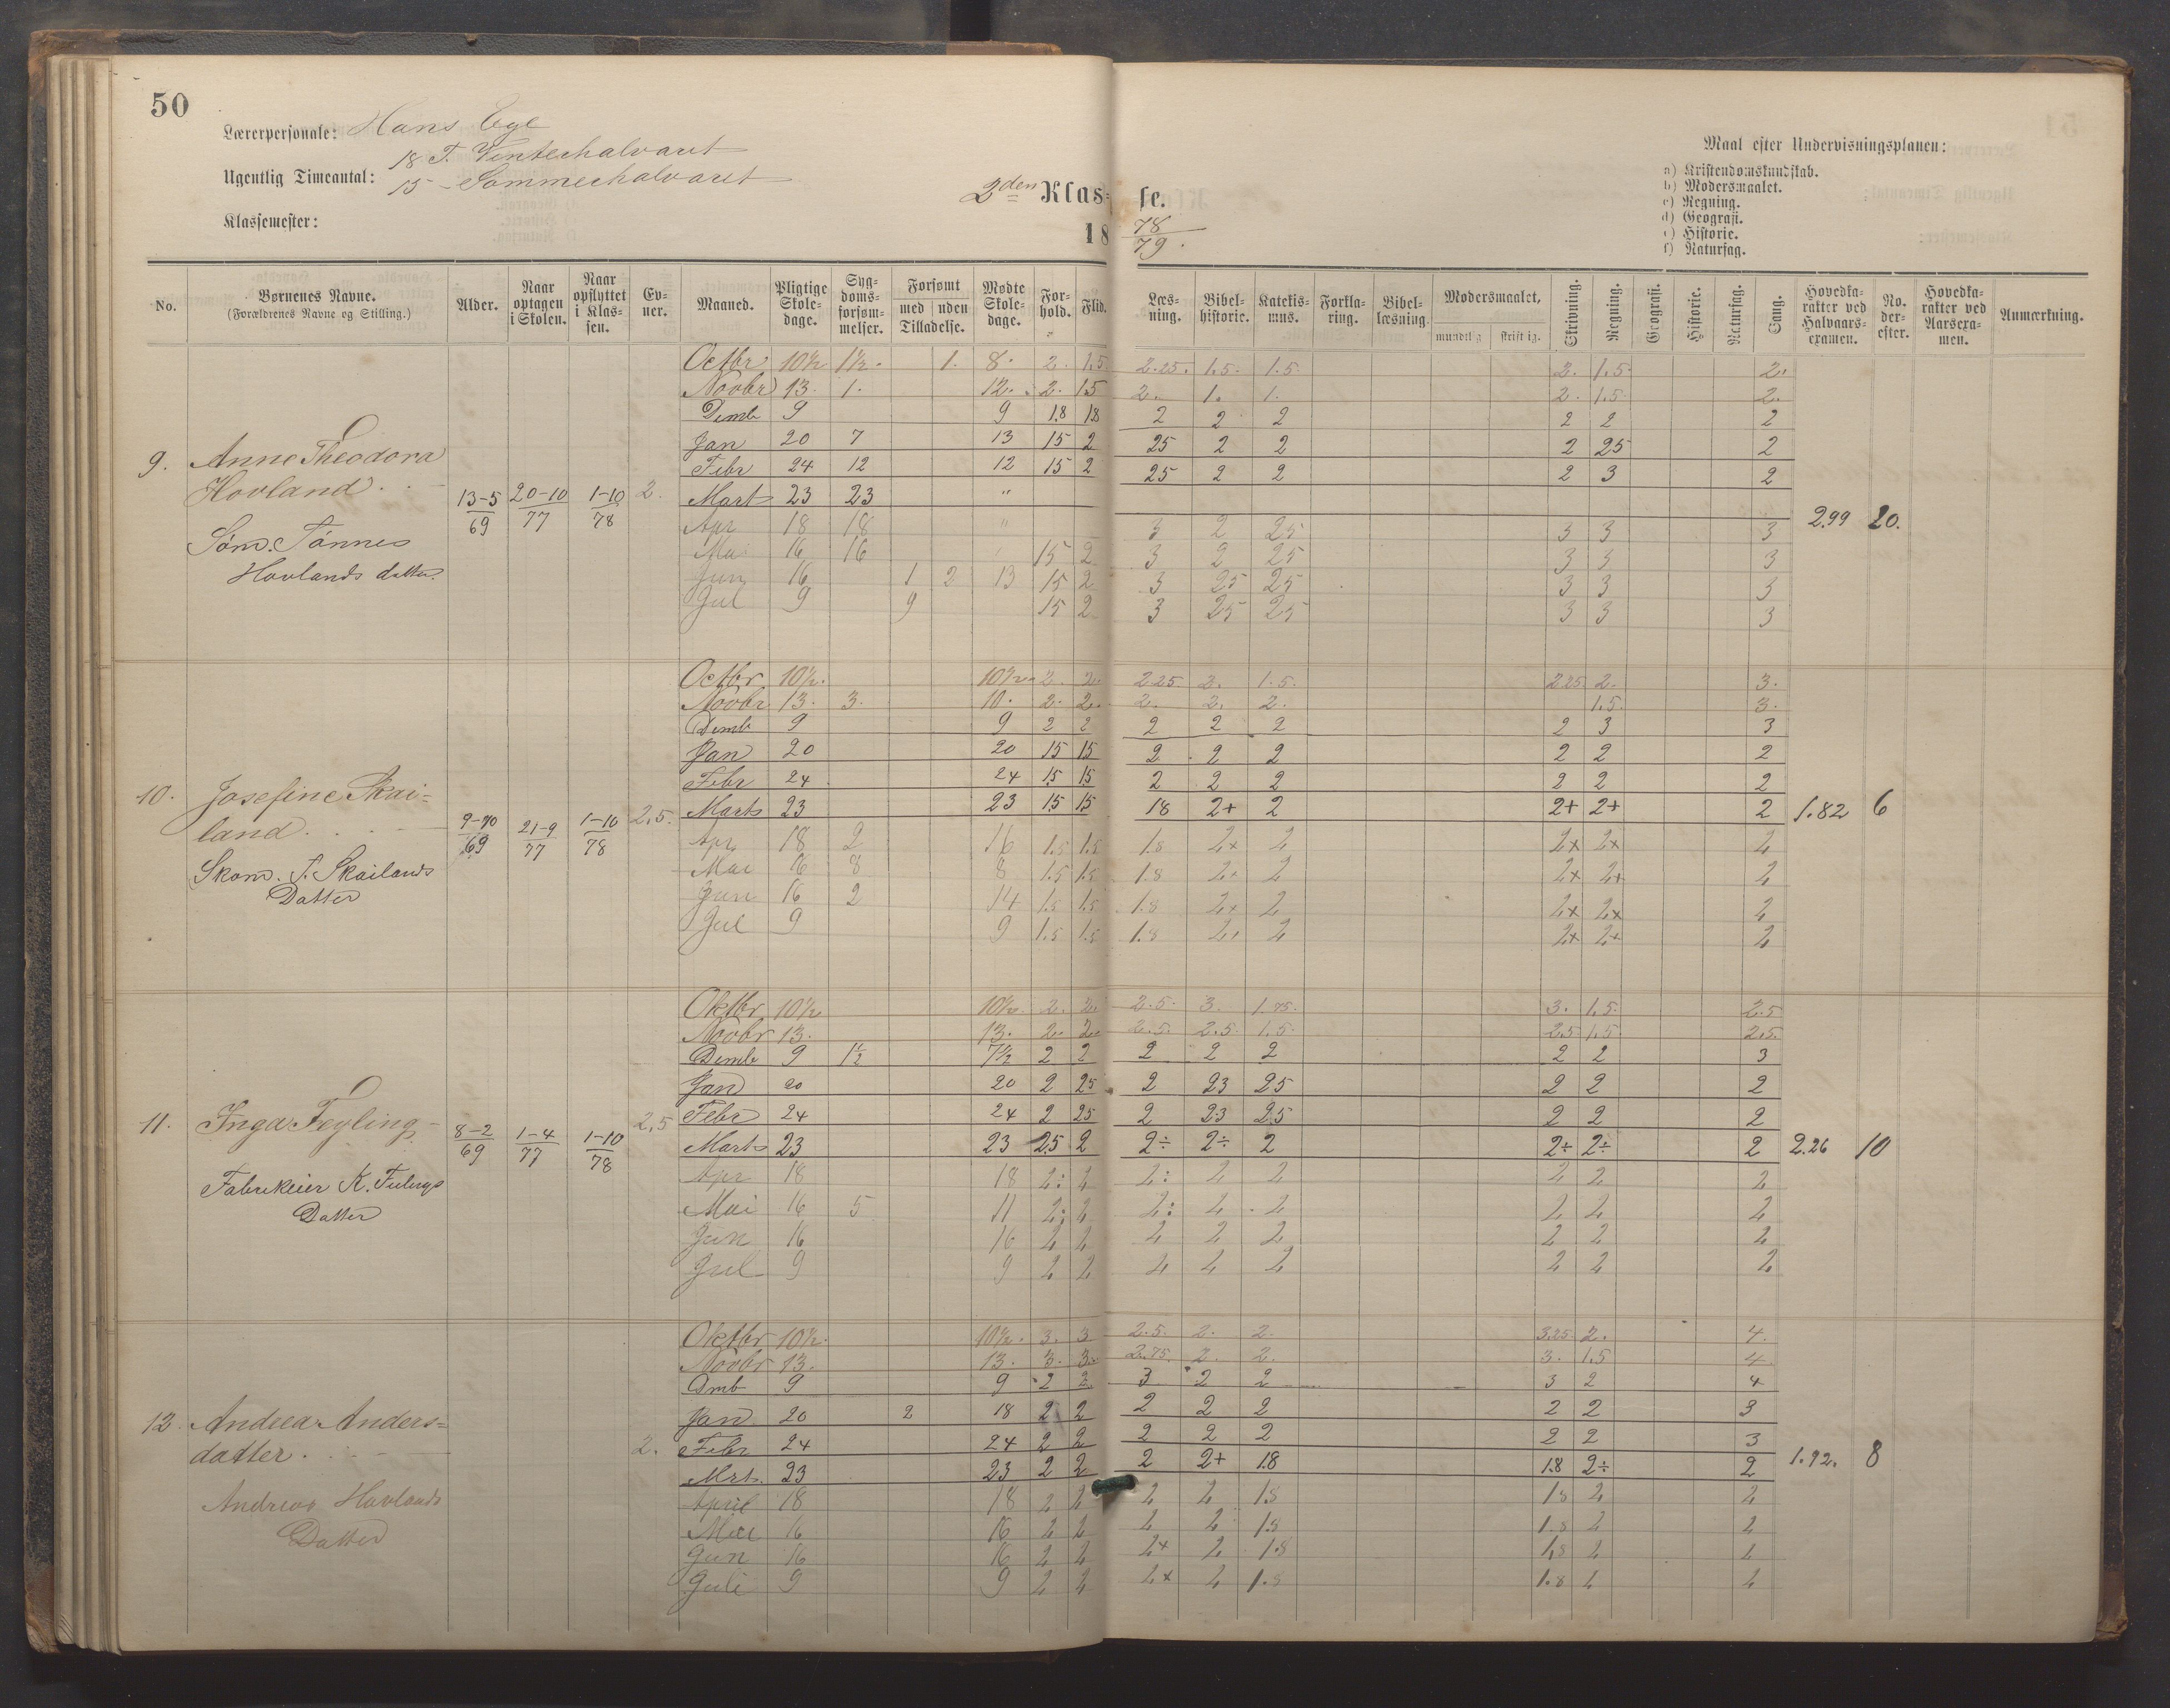 50
Lærerpersonale: Hans Ege
Ugentlig Timeantal: 18 T. Vinterhalvaret
15 - Sommerhalvaret
Klassemester:
2den Klas=se.
18 78/79.
Maal efter Undervisningsplanen:
a) Kristendomskundskab.
b) Modersmaalet.
c) Regning.
d) Geografi.
e) Historie.
f) Naturfag.
No. | Børnenes Navne. (Forældrenes Navne og Stilling.) | Alder. | Naar optagen i Skolen. | Naar opflyttet i Klassen. | Evner. | Maaned. | Pligtige Skoledage. | Sygdomsforsømmelser. | Forsømt med uden Tilladelse. | Mødte Skoledage. | Forhold. | Flid. | Læsning. | Bibelhistorie. | Katekismus. | Forklaring. | Bibellæsning | Modersmaalet, mundtlig skriftlig. | Skrivning. | Regning. | Geografi. | Historie. | Naturfag. | Sang. | Hovedkarakter ved Halvaarsexamen. | No. derefter. | Hovedkarakter ved Aarsexamen. | Anmærkning.
9. Anne Theodora
Hovland.
Søm. Tønnes
Hovlands datter.
13-5/69 20-10/77 1-10/78 2.
Octbr 10½ 1½. 1. 8. 2. 1,5 2.25. 1.5. 1.5. 2. 1.5. 2.
Novbr 13. 1. 12. 2. 1.5 2. 1. 1. 2. 1.5. 2.
Demb 9 9 1.8 1.8 2 2 2 2 2 2
Jan 20 7 13 15 2 25 2 2 2 25 2
Febr 24 12 12 15 2 25 2 2 2 3 2
Mart 23 23 "
Apr 18 18 " 3 2 25 3 3 3
Mai 16 16 15 2 3 2 25 3 3 3
Jun 16 1 2 13 15 2 3 25 25 3 3 3
Jul 9 9 15 2 3 25 25 3 3 3
2.99 20.
10. Josefine Skai=
land.
Skom. T. Skailands
Datter
9-10/69 21-9/77 1-10/78 2,5.
Octbr 10½. 10½. 2. 2. 2.25. 2. 1.5. 2.25. 2. 3.
Novbr 13. 3. 10. 2. 2. 2. 2. 2. 1.5. 3.
Demb 9 9 2 2 2 2 2 2 3 3
Jan 20 20 15 15 2 2 2 2 2 2
Febr 24 24 15 15 2 2 2 2 2 2
Marts 23 23 15 15 18 2+ 2 2+ 2+ 2
Apr 18 2 16 1.5 1.5 1.8 2+ 2 2+ 2+ 2
Mai 16 8 8 1.5 1.5 1.8 2+ 2 2+ 2+ 2
Jun 16 2 14 1.5 1.5 1.8 2+ 2 2+ 2+ 2
Jul 9 9 1.5 1.5 1.8 2+ 2 2+ 2+ 2
1.82 6
11. Inga Feyling
Fabrikeier K. Feilings
Datter
8-2/69 1-4/77 1-10/78 2,5
Oktbr 10½ 10½. 2. 2. 2.5. 3. 1.75. 3. 1.5. 2.5
Novbr 13. 13. 2. 2. 2.5. 2.5. 1.5. 2.5 1.5. 2.5.
Demb 9 1½ 7½ 2 2 2 2 2 2 2 3
Jan 20 20 2 25 2 23 25 2 2 2
Febr 24 24 2 25 2 23 25 2 2 2
Marts 23 23 25 2 2÷ 2÷ 2 2÷ 2÷ 2
Apr 18 18 2: 2 2: 2 2 2 2 2
Mai 16 5 11 2: 2 2: 2 2 2 2 2
Jun 16 16 2 2 2 2 2 2 2 2
Jul 9 9 2 2 2 2 2 2 2 2
2.26 10
12. Andrea Anders=
datter.
Andreas Hovlands
Datter
2.
Oktbr 10½. 10½. 3. 3 2.5. 2. 2. 3.25 2. 4.
Novbr 13. 13. 3. 3. 2.75. 2. 2. 3. 1.5 4.
Dmb 9 9 2 2 3 2 2 3 2 4
Jan 20 2 18 2 2 2 2 2 2 2 3
Febr 24 24 2 2 2 2 2 2 2 3
Mrts 23 23 2 2 2 2+ 1.8 1.8 2÷ 2
April 18 18 2 2 2 2 1.8 1.8 2 2
Mai 16 16 2 2 2 2 1.8 1.8 2 2
Jun 16 16 2 2 2+ 2 1.8 1.8 2 2
Juli 9 9 2 2 2+ 2 1.8 1.8 2 2
1.92. 8